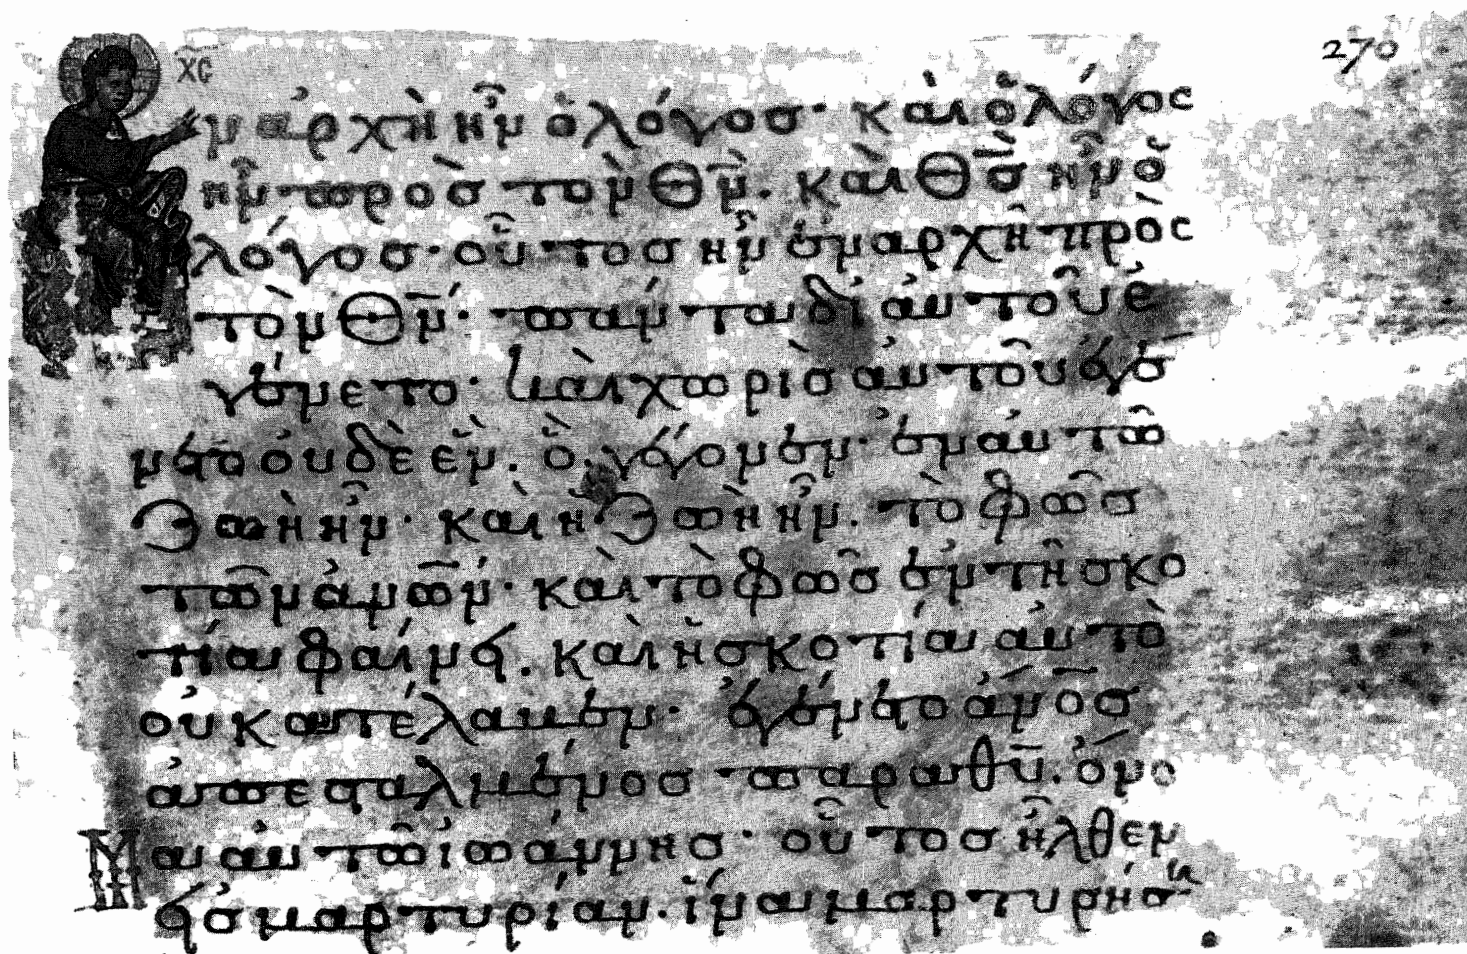 χ̅ς̅
270
ν ἀρχὴ ἦν ὁ λόγος· καὶ ὁ λόγος
ἦν πρὸς τὸν θ̅ν̅. καὶ θ̅ς̅ ἦν ὁ
λόγος· οὗτος ἦν ἐν ἀρχῆ πρὸς
τὸν θ̅ν̅· πάντα δι αὐτοῦ ἐ
γένετο· καὶ χωρὶς αὐτοῦ ἐγέ
νετο οὐδὲ ἕν. ὃ γέγονεν· ἐν αὐτῶ
ζωὴ ἦν· καὶ ἡ ζωὴ ἦν. τὸ φῶς
τῶν ἀν̅ω̅ν̅· καὶ τὸ φῶς ἐν τῆ σκο
τία φαίνει. καὶ ἡ σκοτία αὐτὸ
οὐ κατέλαβεν· ἐγένετο ἄν̅ο̅ς̅
ἀπεσταλμένος παρὰ θ̅υ̅. ὄνο
μα αὐτῶ ἰωάννης· οὗτος ἦλθεν
εἰς μαρτυρίαν. ἵνα μαρτυρήση